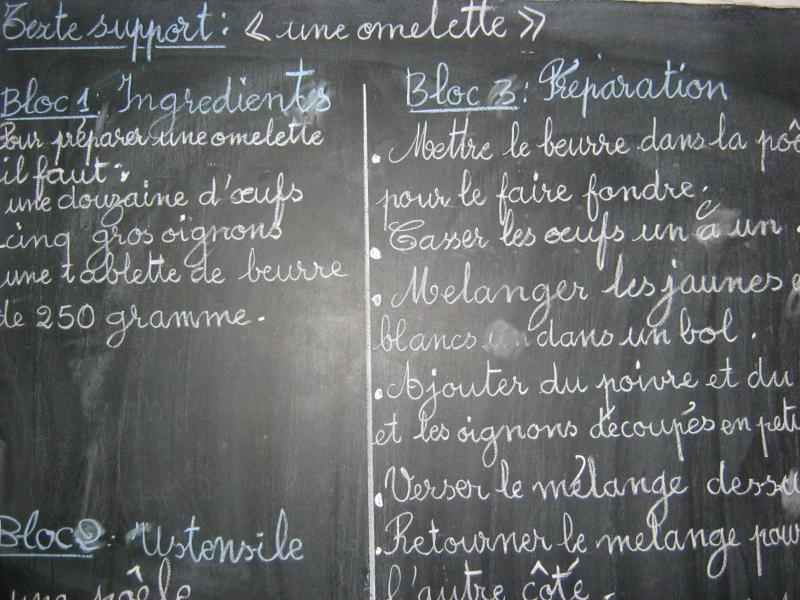 Texte support: « une omelette »
Bloc 1: Ingredients
Pour préparer une omelette
il faut:
une douzaine d'œufs
cinq gros oignons
une tablette de beurre
de 250 gramme.
Bloc 2: Ustensile
une poêle
Bloc 3: Préparation
. Mettre le beurre dans la poê
pour le faire fondre.
. Casser les œufs un à un.
. Melanger les jaunes e
blancs dans un bol.
. Ajouter du poivre et du
et les oignons découpés en peti
. Verser le mélange dessu
. Retourner le melange pour
l'autre côté.